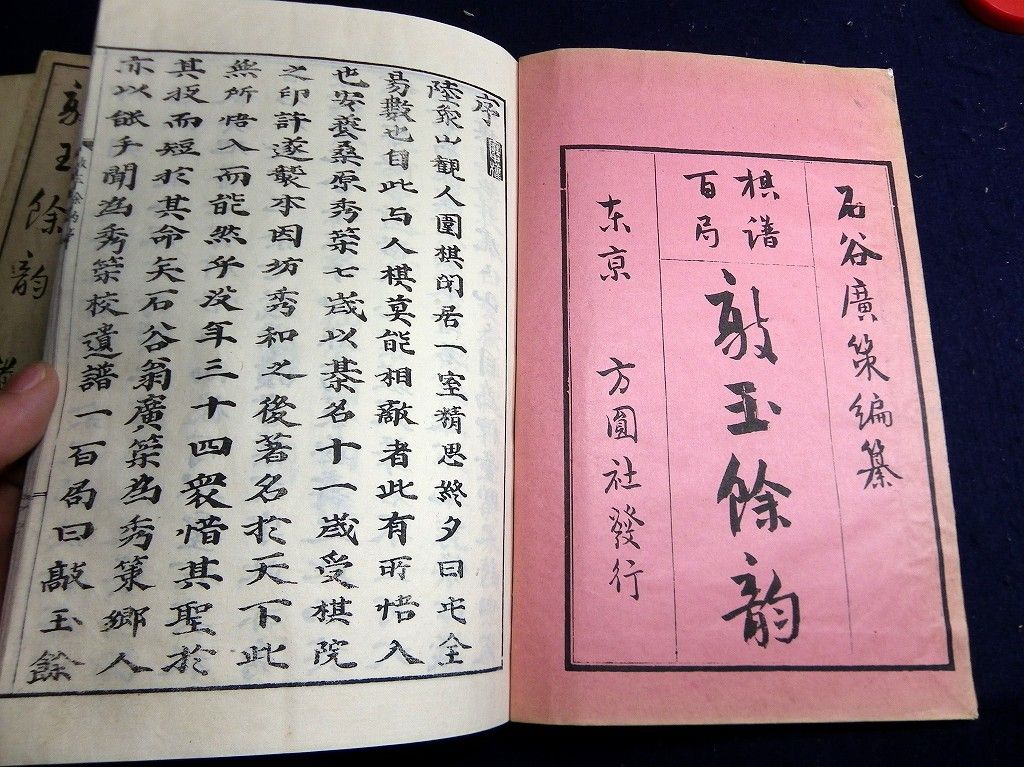 石谷廣策編纂
棋譜
百局
敲玉餘韵
东京 方圓社發行
序
陸象山觀人圍棋閉居一室精思終夕曰此全
易數也自此与人棋莫能相敵者此有所悟入
也安養桑原秀策七歲以棊名十一歲受棋院
之印許遂襲本因坊秀和之後著名於天下此
無所悟入而能然乎没年三十四衆惜其聖於
其技而短於其命矣石谷翁廣策為秀策鄉人
亦以敵手聞為秀策校遺譜一百局曰敲玉餘
敲玉餘韵